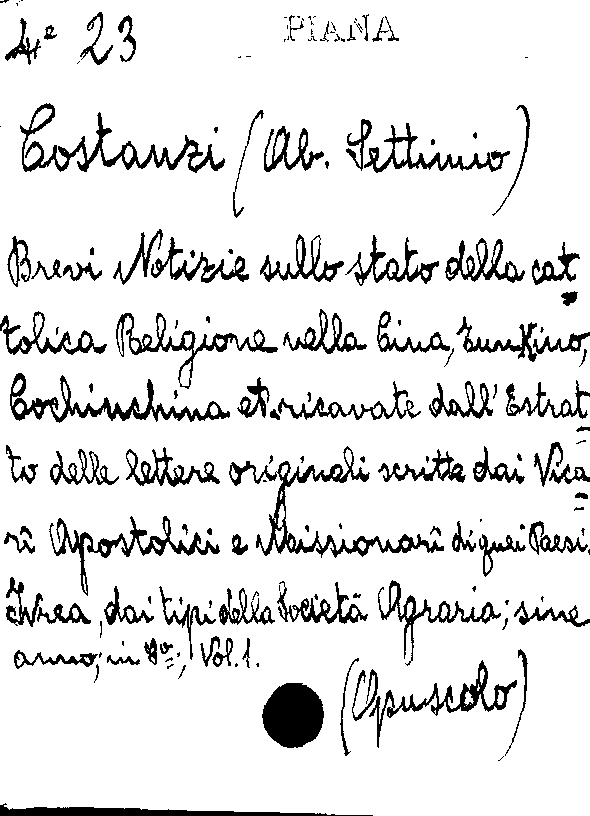 4e 23 PIANA
Costanzi (Ab. Settimio)
Brevi Notizie sullo stato della cat
tolica Religione nella Cina, Tunkino,
Cochinchina et. ricavate dall' Estrat
to delle lettere originali scritte dai Vica
rî Apostolici e Missionarî di quei Paesi.
Ivrea, dai tipi della Società Agraria; sine
anno; in 8o; Vol. 1.
(Opuscolo)